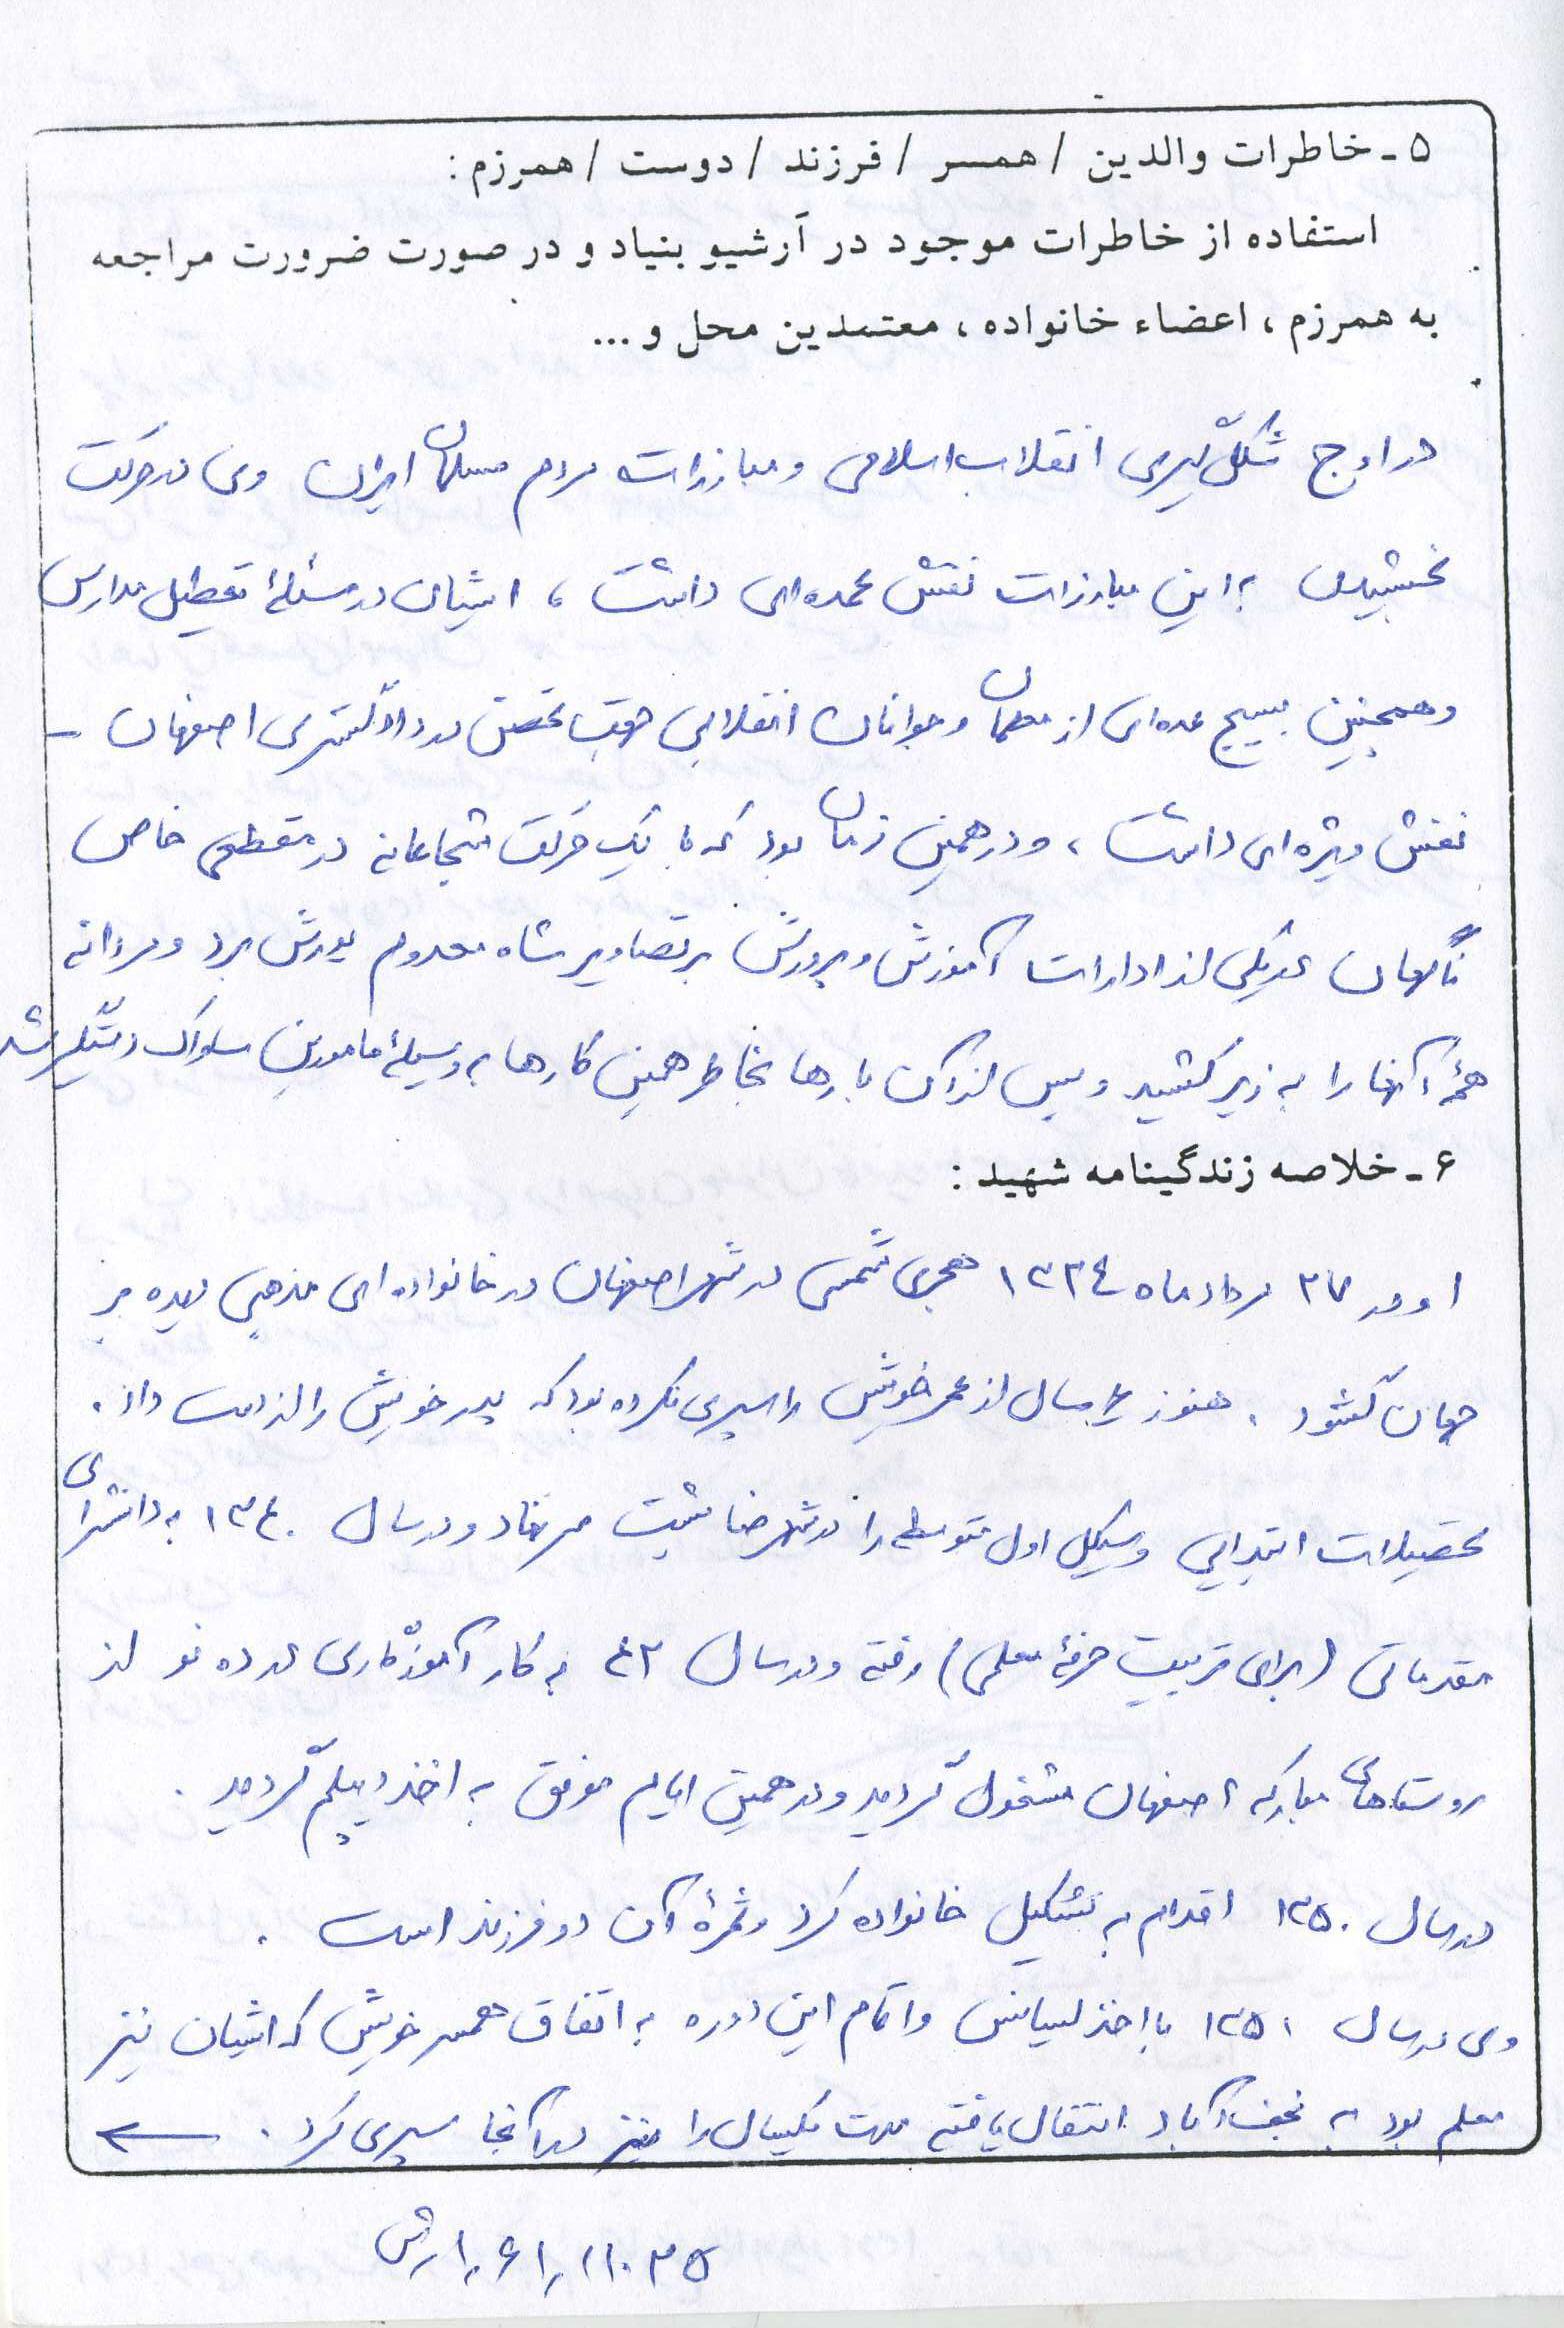 ۵ - خاطرات والدین / همسر / فرزند / دوست / همرزم :
استفاده از خاطرات موجود در آرشیو بنیاد و در صورت ضرورت مراجعه
به همرزم ، اعضاء خانواده ، معتمدین محل و ...
در اوج شکل گیری انقلاب اسلامی و مبارزات مردم مسلمان ایران وی در حرکت
بخشیدن به این مبارزات نقش عمده ای داشت ، ایشان در مسئلهٔ تعطیل مدارس
و همچنین بسیج عده ای از معلمان و جوانان انقلابی جهت تحصن در دادگستری اصفهان -
نقش ویژه ای داشت ، و در همین زمان بود که با یک حرکت شجاعانه در مقطعی خاص
ناگهان در یکی از ادارات آموزش و پرورش بر تصاویر شاه معدوم یورش برد و مردانه
همهٔ آنها را به زیر کشید و پس از آن بارها بخاطر همین کارها به وسیلهٔ مامورین ساواک دستگیر شد
۶ - خلاصه زندگینامه شهید :
او در ۲۷ مرداد ماه ۱۳۲۴ هجری شمسی در شهر اصفهان در خانواده ای مذهبی دیده بر
جهان گشود . هنوز سال از عمر خویش را سپری نکرده بود که پدر خویش را از دست داد .
تحصیلات ابتدایی و سیکل اول متوسطه را در شهرضا پشت سر نهاد و در سال ۱۳۴۰ به دانشسرای
مقدماتی (برای تربیت حرفهٔ معلمی) رفته و در سال ۴۲ به کار آموزگاری در ده نو از
روستاهای مبارکه اصفهان مشغول گردید و در همین ایام موفق به اخذ دیپلم گردید .
در سال ۱۳۵۰ اقدام به تشکیل خانواده کرد و ثمرهٔ آن دو فرزند است .
وی در سال ۱۳۵۱ با اخذ لیسانس و اتمام این دوره به اتفاق همسر خویش که ایشان نیز
معلم بود به نجف آباد انتقال یافته مدت یکسال را نیز در آنجا سپری کرد .